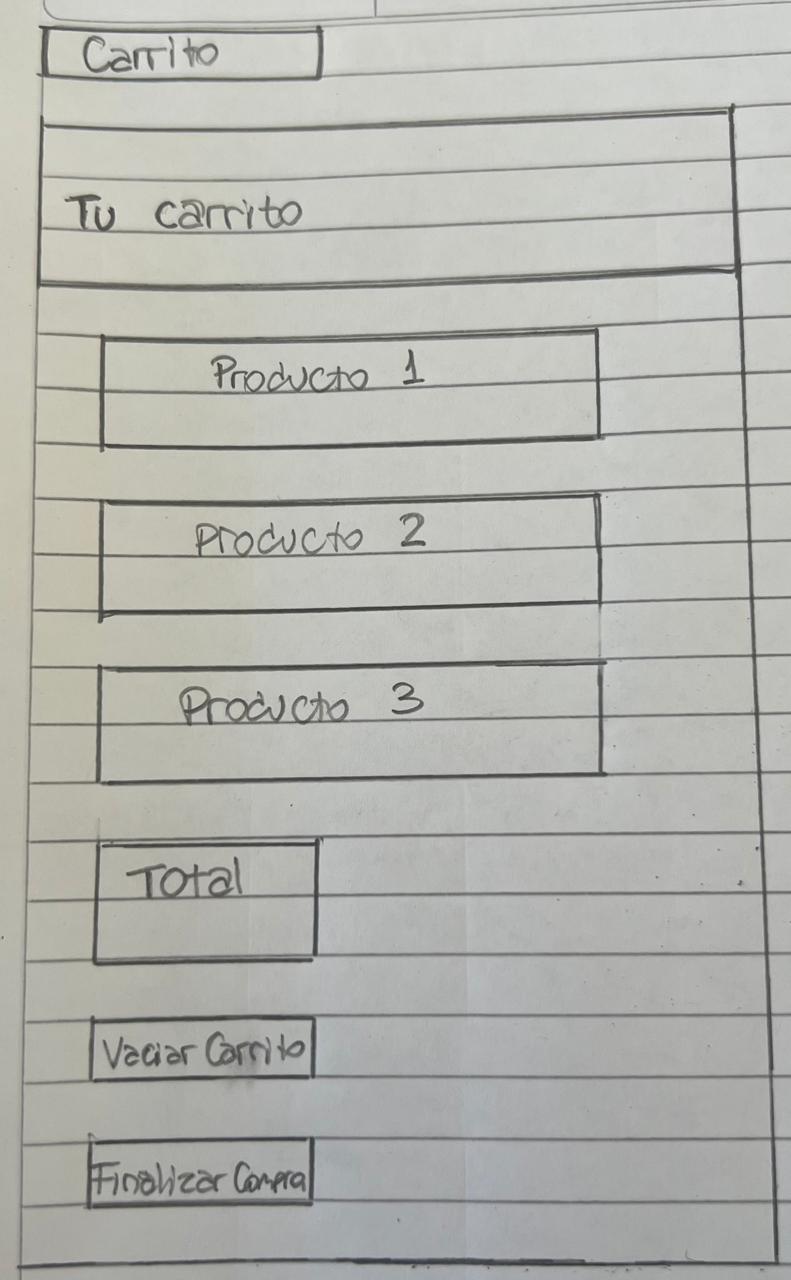 Carrito
Tu carrito
Producto 1
Producto 2
Producto 3
Total
Vaciar Carrito
Finalizar Compra